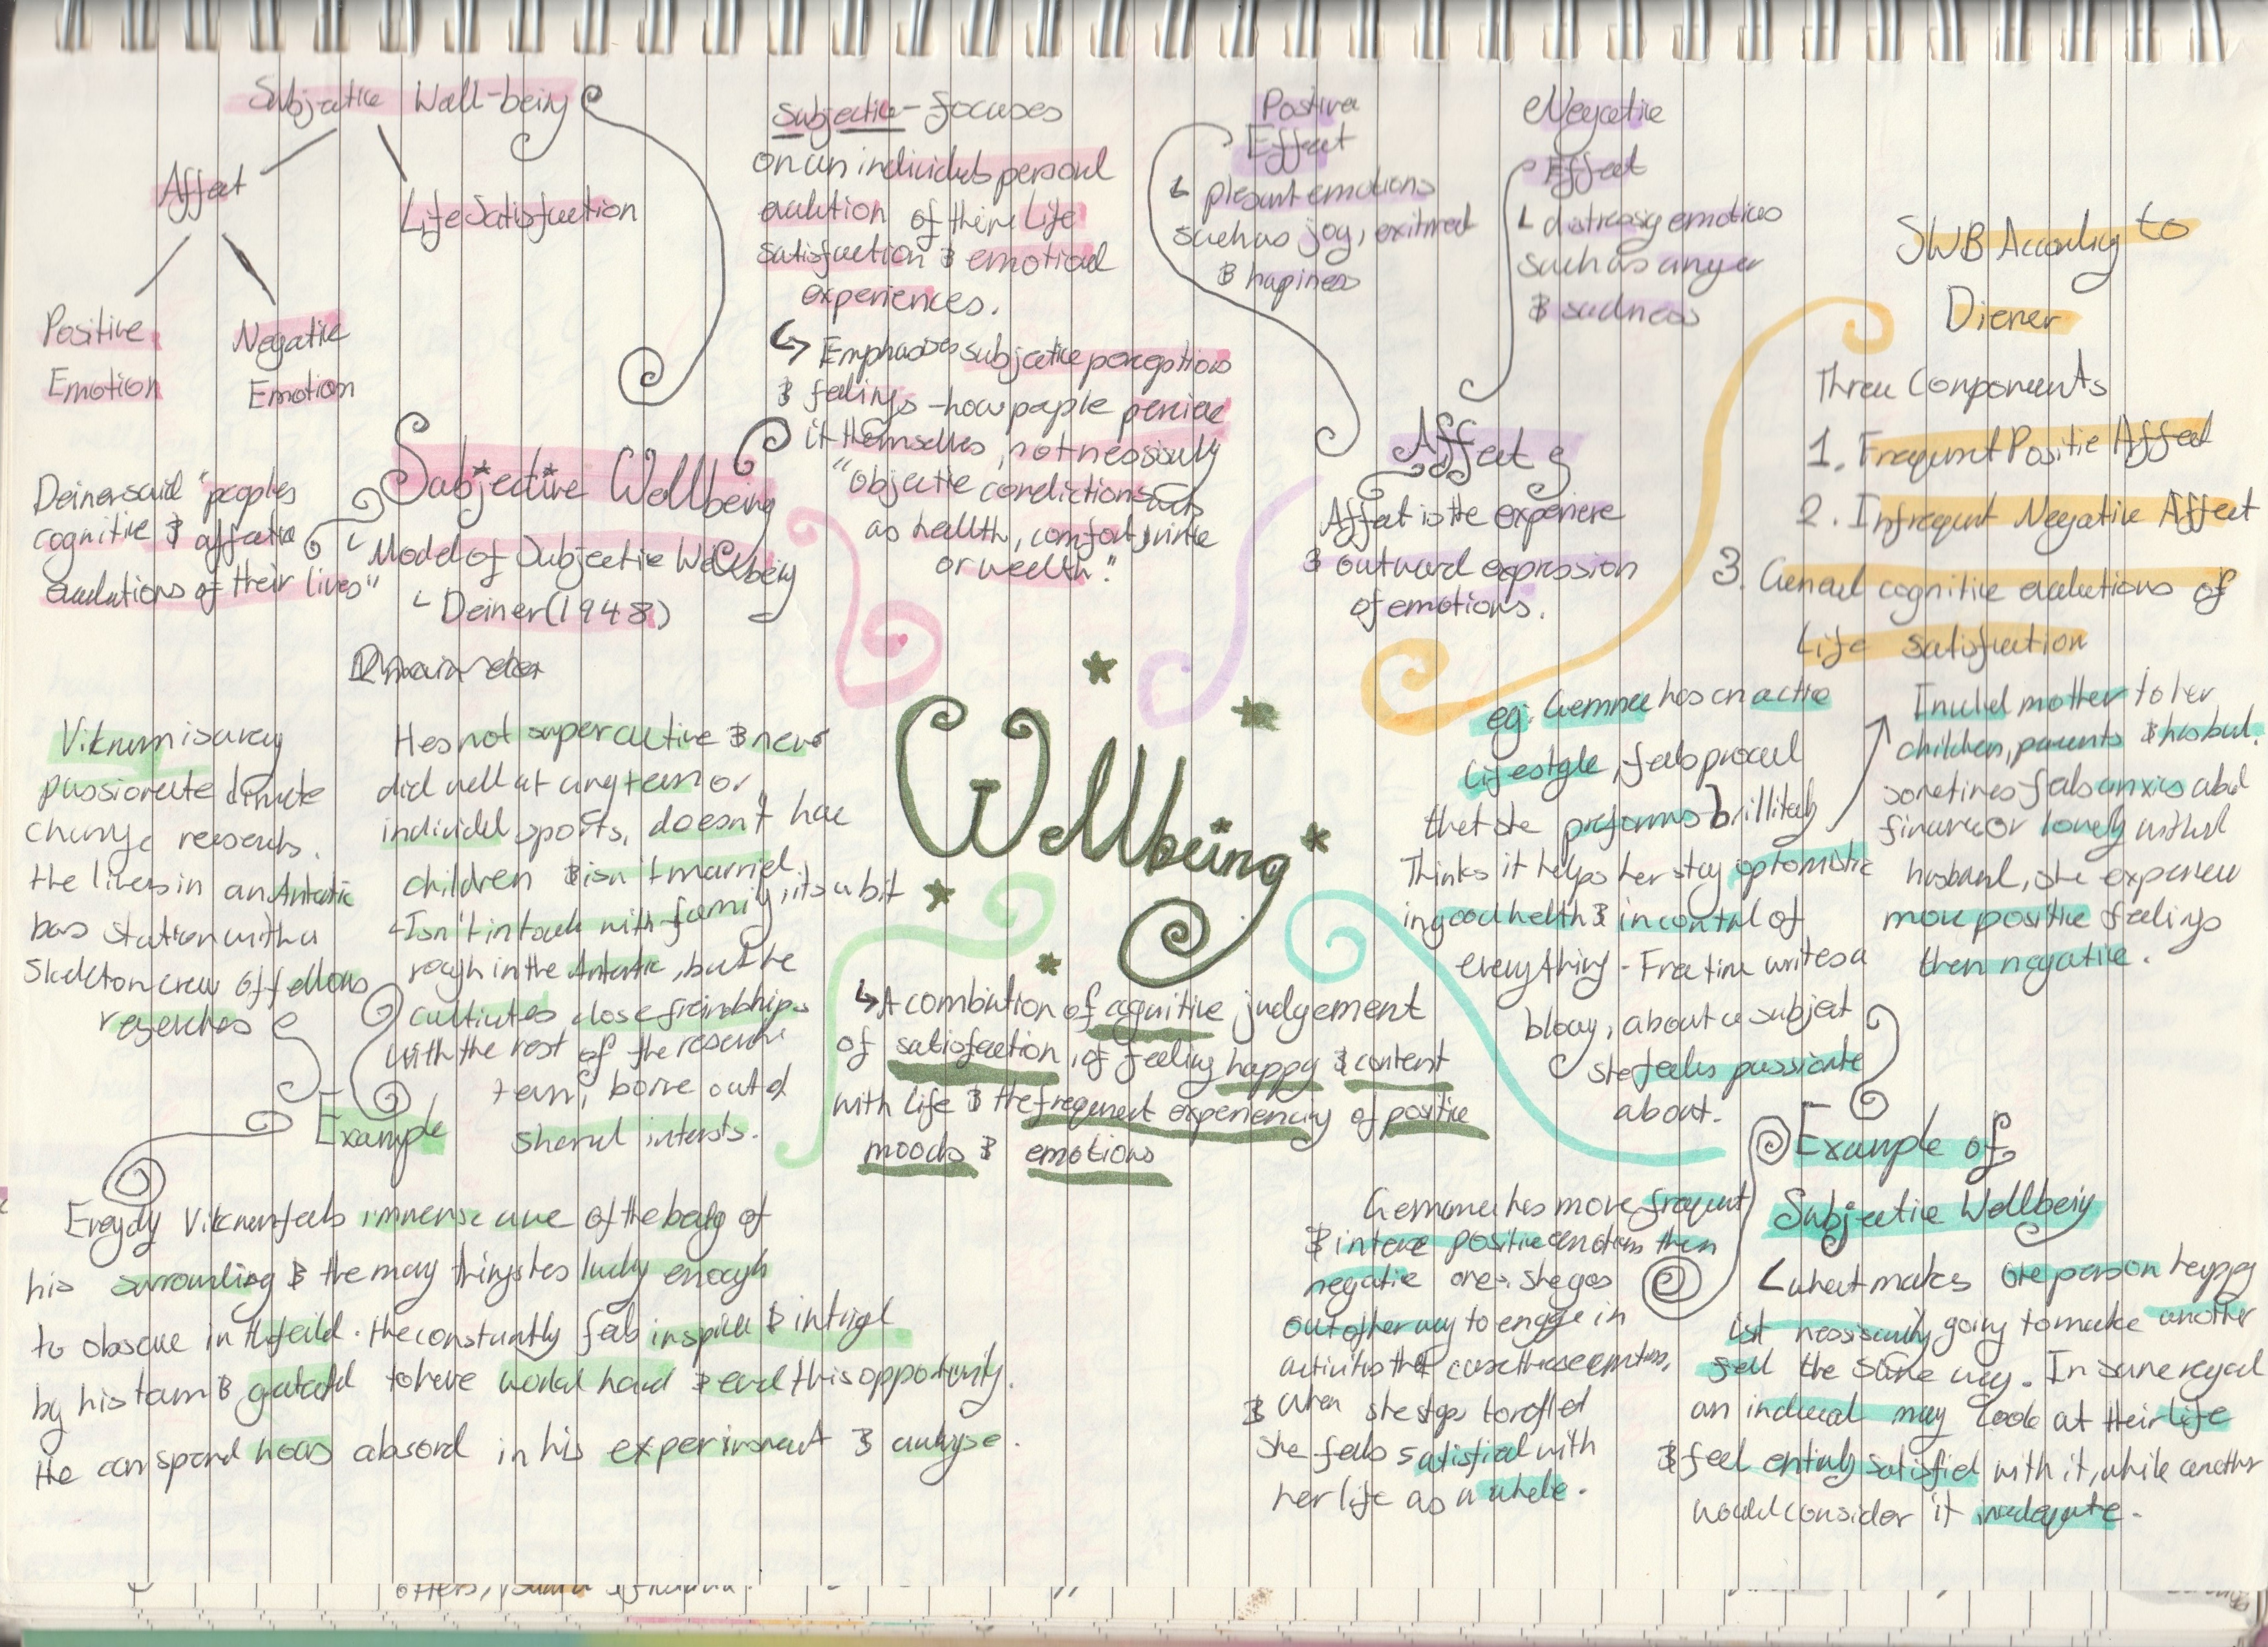 Subjective Well-being
Affect
Life Satisfaction
Positive
Emotion
Negative
Emotion
Subjective Wellbeing
Model of Subjective Wellbeing
Deiner (1948)
Deiner said "peoples
cognitive & affective
evalutions of their lives"
Subjective - focuses
on an individuls personal
evalution of there Life
satisfaction & emotional
experiences.
Emphasises subjective perceptions
& feelings - how people percive
it themselves, not nessisarly
"objective condictions such
as health, comfort, virtue
or wealth."
Positive
Effect
plesant emotions
such as joy, exitment
& hapiness
Negative
Effect
distressing emotions
such as anger
& sadness
Affect
Affect is the experience
& outward expression
of emotions.
SWB According to
Diener
Three Components
1. Frequent Positive Affect
2. Infrequent Negative Affect
3. General cognitive evalutions of
Life satisfaction
Wellbeing
A combination of cognitive judgement
of satisfaction, of feeling happy & content
with life & the frequent experiencing of positive
moods & emotions
Example
Viknum is a very
passionate climate
change reserch.
He lives in an Antartic
bas station with a
skeleton crew of fellows
reserches
Hes not super active & never
did well at any team or
individul sports, doesn't have
children & isn't married.
Isn't in touch with family, its a bit
rough in the Antartic, but he
cultivates close freindships
with the rest of the reserch
team, borne out of
shared intersts.
Viknum feels immense awe of the beuty of
his surrounding & the many things hes lucky enough
to obscue in the feild. He constantly feels inspired & intrigd
by his team & grateful to have worked hard & earnd this opportunity.
He can spend hours absord in his experiment & analyse.
eg. Gemma has an active
Lifestyle, feels proud
that she preforms brillitely
Thinks it helps her stay optomistic
in good health & in contral of
everything - Free time writes a
blog, about a subject
she feels passionate
about.
Involed mother to her
children, parents & husband.
sometimes feels anxis about
finance or lonely without
husband, she experience
more positive feelings
then negative.
Gemma has more frequent
& intense positive emotions then
negative ones. She goes
out of her way to engage in
activities that cause these emotions,
& when she stops to reflet
she feels satisfied with
her life as a whole.
Example of
Subjective Wellbeing
what makes one person happy
isnt nessisarily going to make another
feel the same way. In same regard
an indivual may look at their life
& feel entirly satisfied with it, while another
would consider it inadequate.